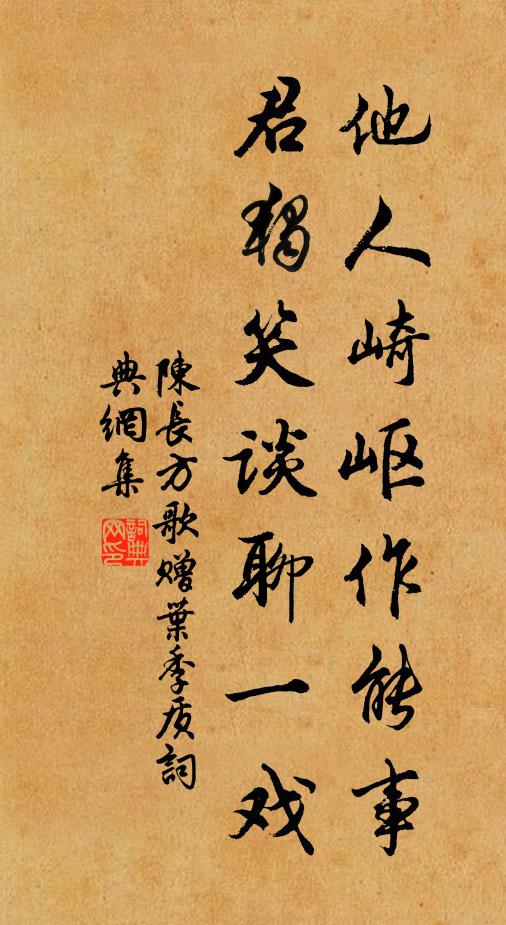 他人崎岖作能事
君独笑谈聊一戏
陳長方歌贈葉季质詞
典網集
詞典网印